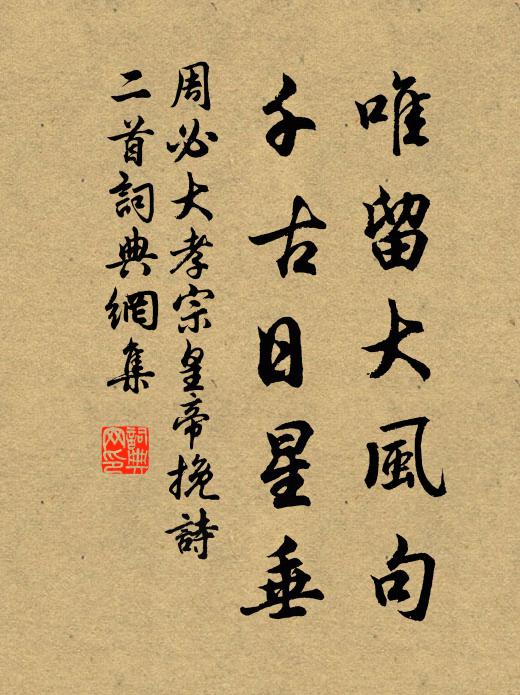 唯留大風句
千古日星垂
周必大孝宗皇帝挽詩
二首詞典網集
詞典
网印